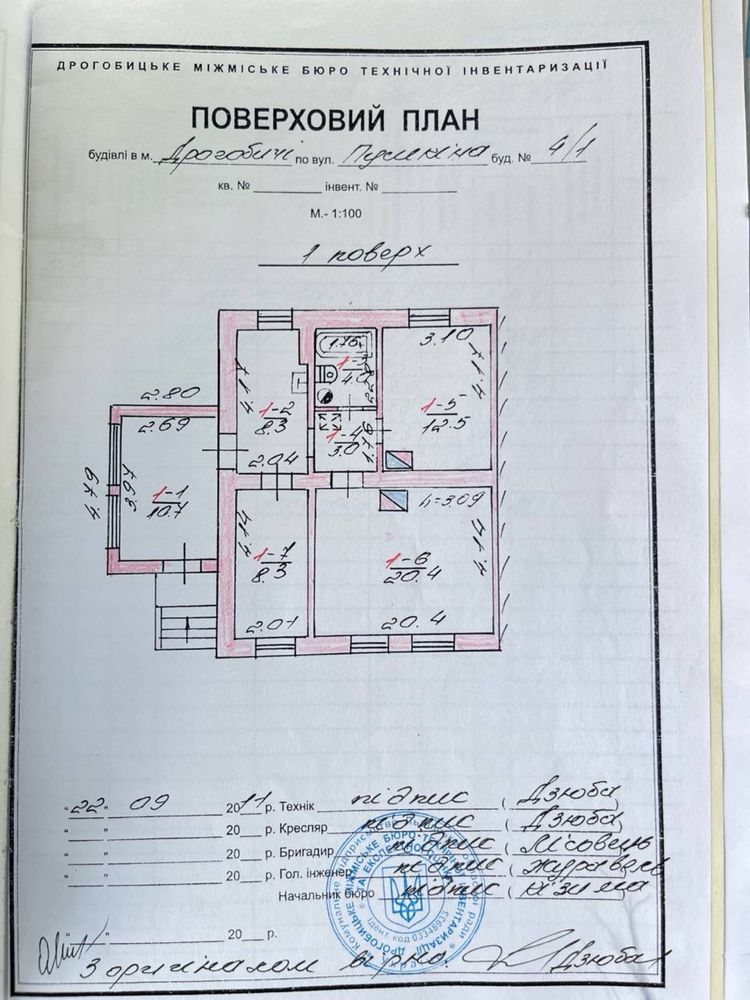 ДРОГОБИЦЬКЕ МІЖМІСЬКЕ БЮРО ТЕХНІЧНОЇ ІНВЕНТАРИЗАЦІЇ
ПОВЕРХОВИЙ ПЛАН
будівлі в м. Дрогобичі по вул. Пушкіна буд. № 4/1
кв. № інвент. №
М.- 1:100
1 поверх
1.76 3.10
4.17 1-3 4.0 4.17
1-2 8.3 1-5 12.5
2.80
2.69 1-4 3.0
2.04
4.79 3.97 1-1 10.7 h=3.09
4.14 1-7 8.3 1-6 20.4
2.01 20.4
"22" 09 2011 р. Технік підпис (Дзюба)
" " 20 р. Кресляр підпис (Дзюба)
" " 20 р. Бригадир підпис (Лісовець)
" " 20 р. Гол. інженер підпис (Журавель
Начальник бюро підпис (Кізима)
" " 20 р.
З оригіналом вірно: Дзюба
ДРОГОБИЦЬКЕ МІЖМІСЬКЕ БЮРО ТЕХНІЧНОЇ ІНВЕНТАРИЗАЦІЇ ТА ЕКСПЕРТНОЇ ОЦІНКИ
Ідент. код 03348933